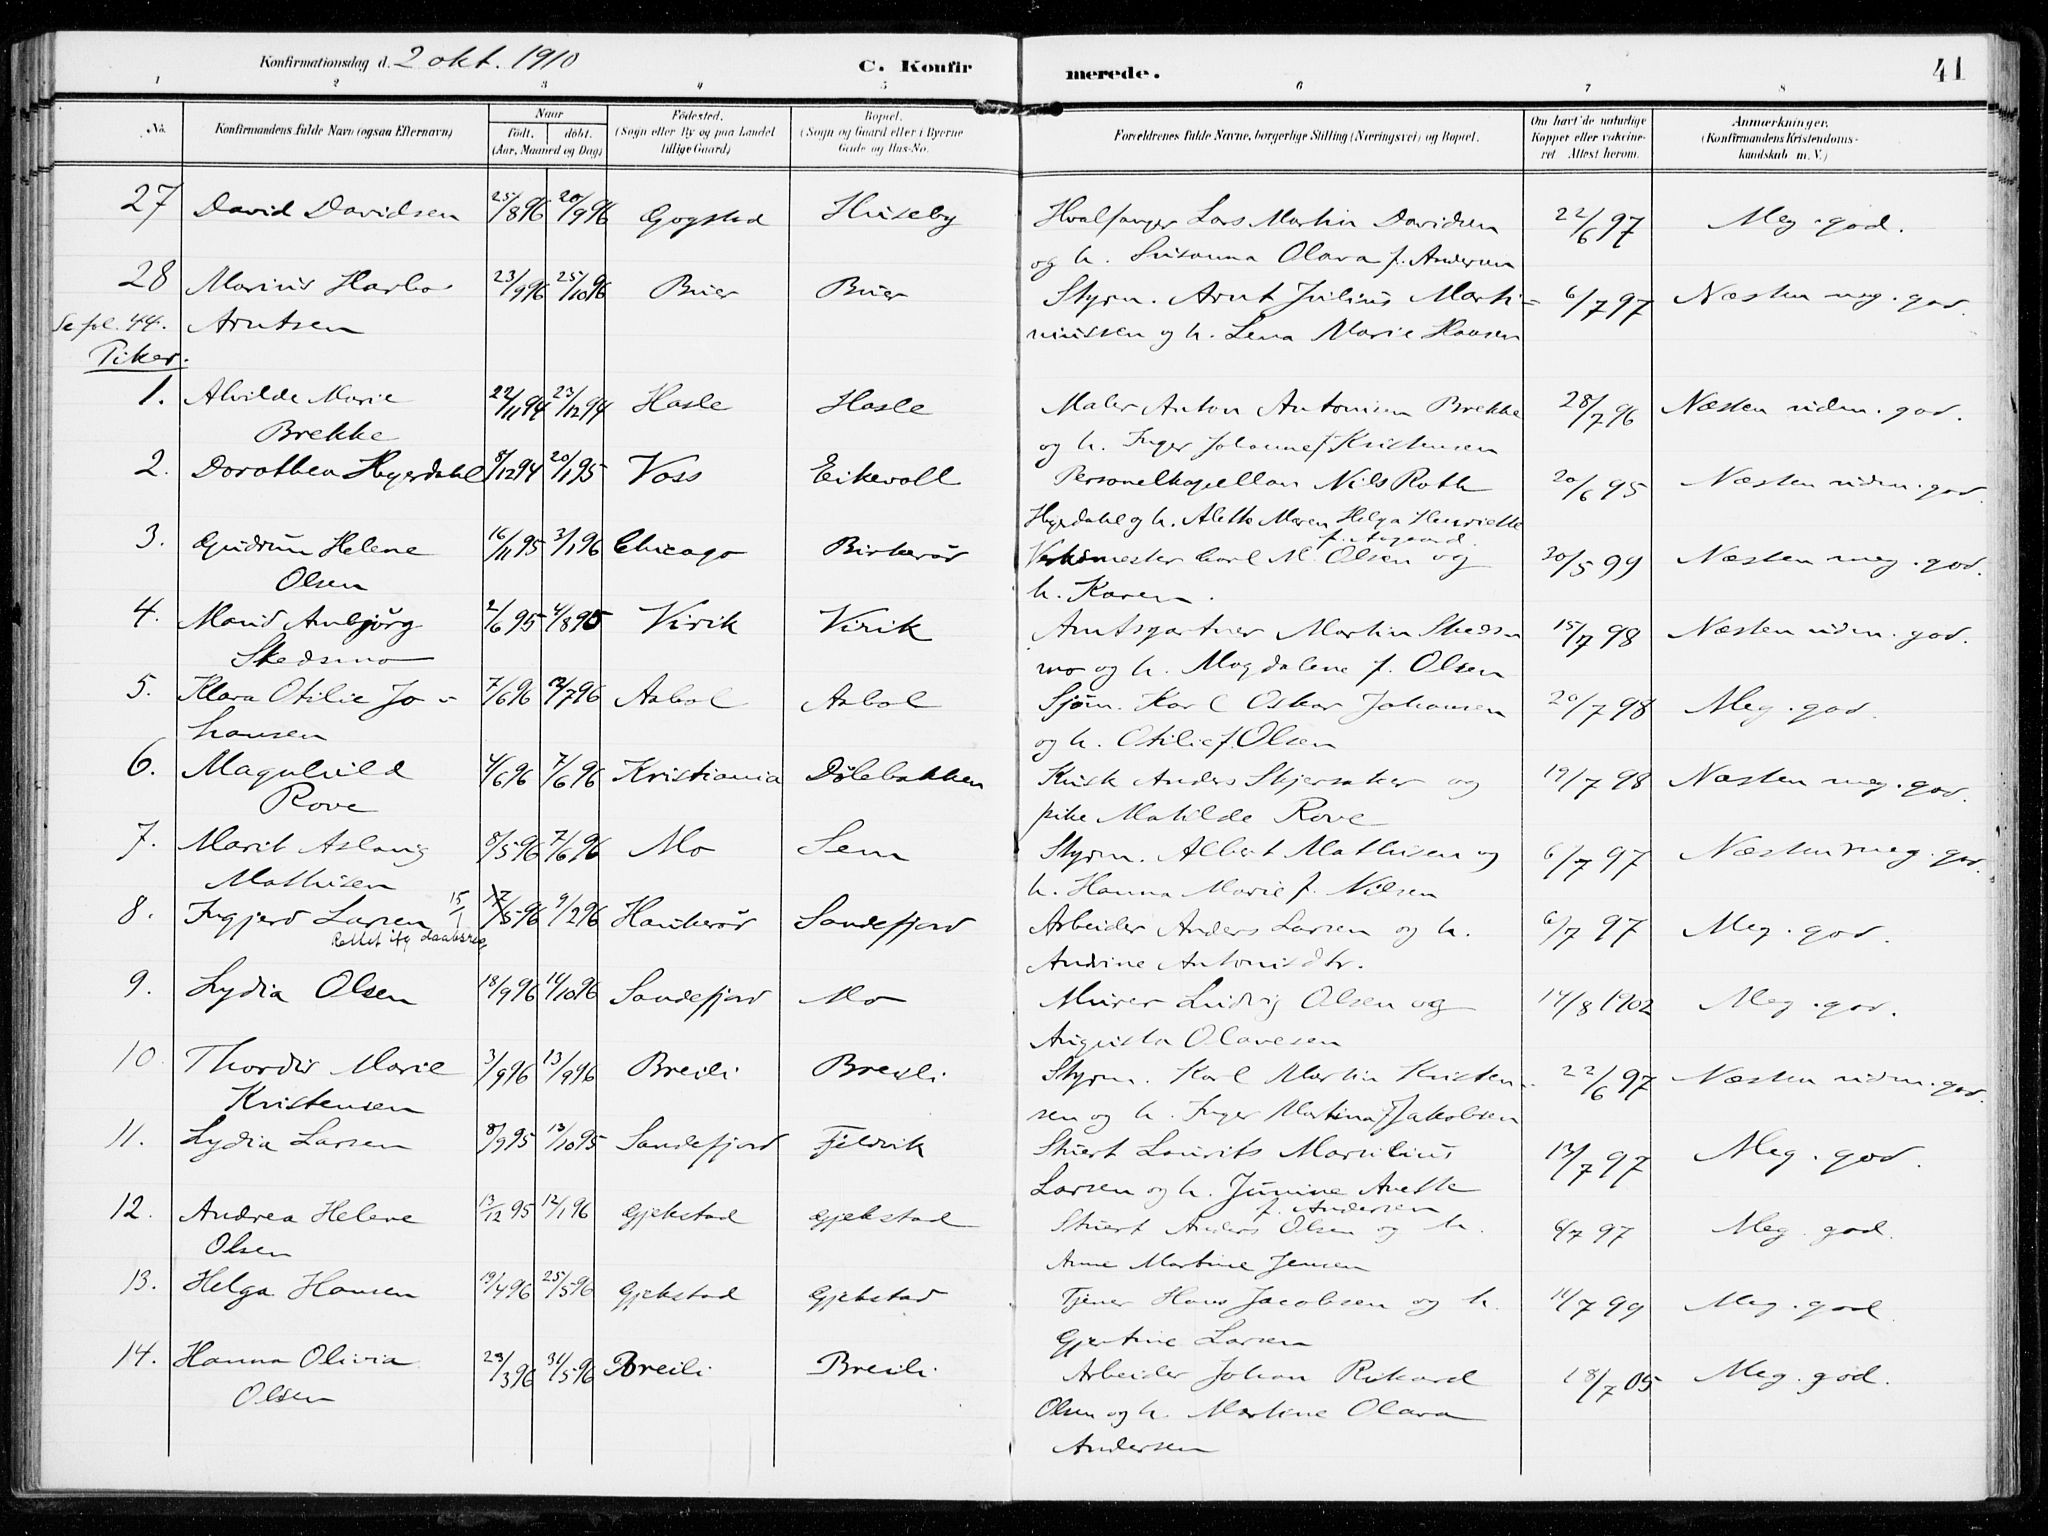 Konfirmationsdag d. 2 okt. 1910 C. Konfirmerede. 41
1 2 3 4 5 6 7 8
No. Konfirmandens fulde Navn (ogsaa Efternavn) Naar født. døbt. (Aar, Maaned og Dag) Fødested. (Sogn eller By og paa Landet tillige Gaard) Bopæl. (Sogn og Gaard eller i Byerne Gade og Hus-No. Forældrenes fulde Navne, borgerlige Stilling (Næringsvei) og Bopæl. Om havt de naturlige Kopper eller vaksineret Attest herom. Anmærkninger. (Konfirmandens Kristendomskundskab m. V.)
27 David Davidsen 25/8 96 20/9 96 Gogstad Huseby Hvalfanger Lars Martin Davidsen 22/6 97 Meg. god.
og h. Susanna Olava f. Andersen
28 Marius Harbo 23/9 96 25/10 96 Buer Buer Styrm. Arnt Julius Marti- 6/7 97 Næsten meg. god.
Se fol. 44. Arntsen minussen og h. Lena Marie Hansen
Piker.
1. Alvilde Marie 22/11 94 23/12 94 Hasle Hasle Maler Anton Antonisen Brekke 28/7 96 Næsten udm. god.
Brekke og h. Inger Johanne f. Kristensen
2. Dorothea Heyerdahl 8/12 94 20/1 95 Voss Eikevoll Personelkapellan Nils Roth 20/6 95 Næsten udm. god.
Heyerdahl og h. Alette Maren Helga Henriette
3. Gudrun Helene 16/11 95 3/1 96 Chicago Birkerød Verksmester Carl M. Olsen og 20/5 99 Næsten meg. god.
Olsen h. Karen.
4. Maud Anbjørg 2/6 95 4/8 95 Virik Virik Amtsgartner Martin Skeds 15/7 98 Næsten udm. god.
Skedsmo mo og h. Magdalene f. Olsen
5. Klara Otilie Jo- 7/6 96 12/7 96 Aabol Aabol Sjøm. Karl Oskar Johansen 20/7 98 Meg. god.
hansen og h. Otilie f. Olsen
6. Magnhild 4/6 96 7/6 96 Kristiania Dølebakken Kusk Anders Skjersaker og 19/7 98 Næsten meg. god.
Rove pike Matilde Rove
7. Marit Aslaug 8/5 96 7/6 96 Mo Sem Styrm. Albert Mathisen og 6/7 97 Næsten meg. god.
Mathisen h. Hanna Marie f. Nilsen
8. Ingjerd Larsen 15/1 17/5 96 9/2 96 Haukerød Sandefjord Arbeider Anders Larsen og h. 6/7 97 Meg. god.
Rettet ifg daabsreg. Andrine Antonisdtr.
9. Lydia Olsen 18/9 96 14/10 96 Sandefjord Mo Murer Ludvig Olsen og 14/8 1902 Meg. god.
Augusta Olavesen
10 Thordis Marie 3/9 96 13/9 96 Breili Breili Styrm. Karl Martin Kristen- 22/6 97 Næsten udm. god.
Kristensen sen og h. Inger Martina f. Jakobsen
11. Lydia Larsen 8/9 95 13/10 95 Sandefjord Fjeldvik Stuert Laurits Marsilius 13/7 97 Meg. god.
Larsen og h. Junine Anette
f. Andersen
12. Andrea Helene 13/12 95 12/1 96 Gjekstad Gjekstad Stuert Anders Olsen og h. 6/7 97 Meg. god.
Olsen Anne Martine Jensen
13. Helga Hansen 19/4 96 25/5 96 Gjekstad Gjekstad Tjener Hans Jacobsen og h. 11/7 99 Meg. god.
Gjertine Larsen
14. Hanna Olivia 23/3 96 31/5 96 Breili Breili Arbeider Johan Rikard 18/7 05 Meg. god.
Olsen Olsen og h. Martine Olava
Andersen